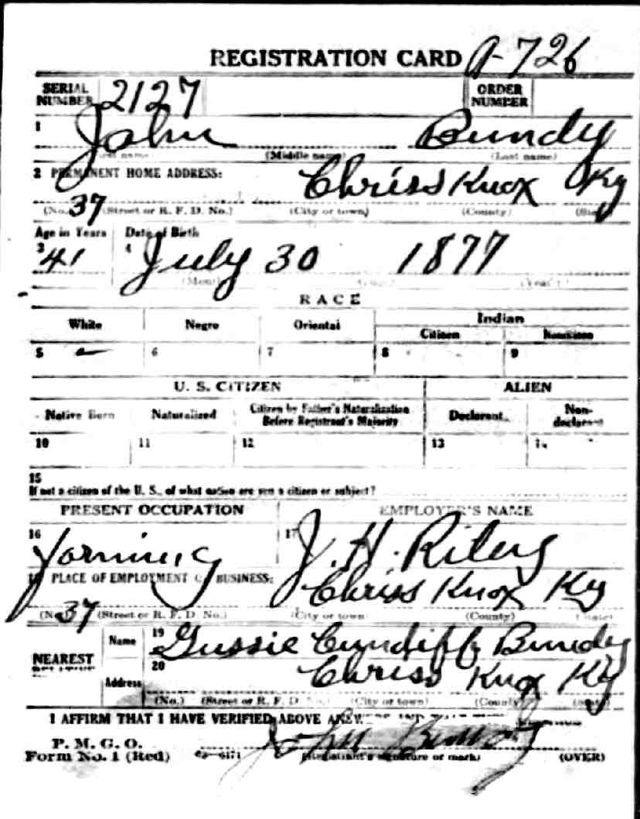 REGISTRATION CARD A-726
SERIAL NUMBER 2127 ORDER NUMBER
1 John Bundy
(Middle name) (Last name)
2 PERMANENT HOME ADDRESS: Chriss Knox Ky
(No.) 37 (Street or R. F. D. No.) (City or town) (County)
Age in Years Date of Birth
3 41 4 July 30 1877
RACE
White Negro Oriental Indian
Citizen Noncitizen
5 6 7 8 9
U. S. CITIZEN ALIEN
Native Born Naturalized Citizen by Father's Naturalization Before Registrant's Majority Declarant Non-declarant
10 11 12 13
15
If not a citizen of the U. S., of what nation are you a citizen or subject?
PRESENT OCCUPATION EMPLOYER'S NAME
16 Farming 17 J. H. Riley
PLACE OF EMPLOYMENT OR BUSINESS: Chriss Knox Ky
(No.) 37 (Street or R. F. D. No.) (City or town) (County) (State)
NEAREST RELATIVE Name 19 Gussie Cundiff Bundy
Address 20 Chriss Knox Ky
(No.) (Street or R. F. D. No.) (City or town) (County) (State)
I AFFIRM THAT I HAVE VERIFIED ABOVE ANSWERS AND THAT
P. M. G. O.
Form No. 1 (Red) John Bundy
(Registrant's signature or mark) (OVER)